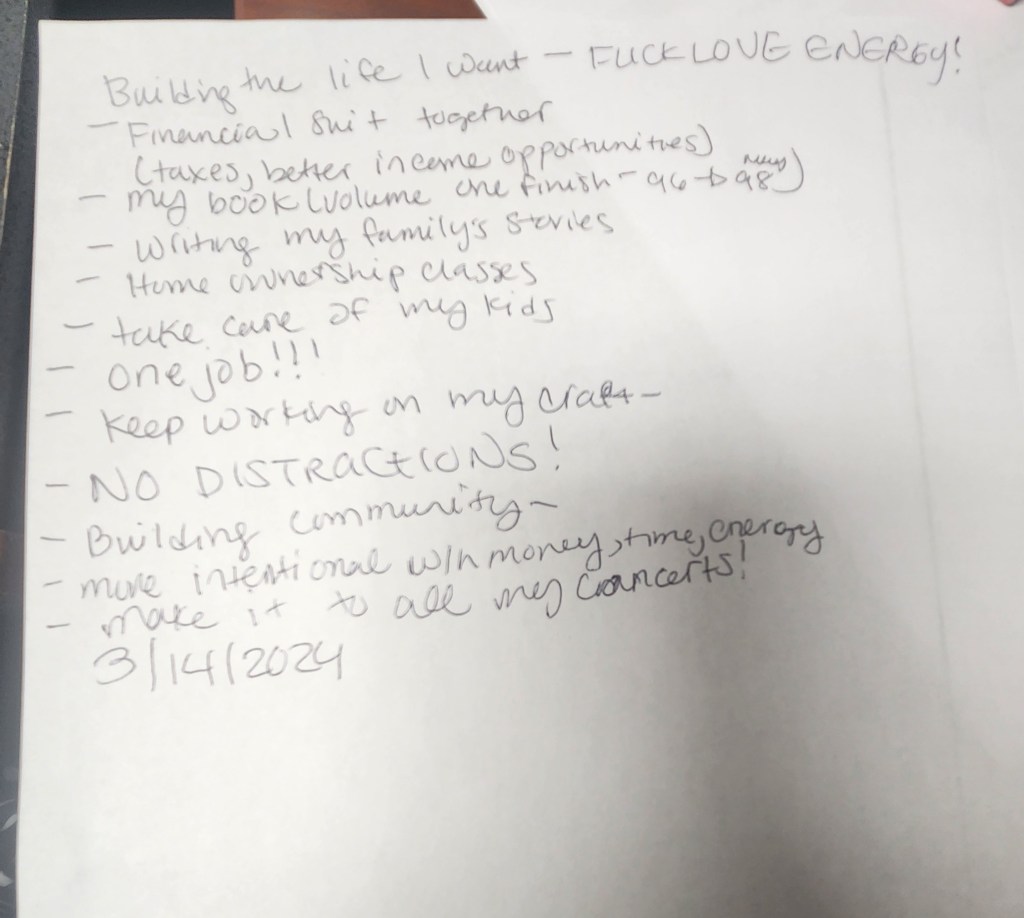 Building the life I want - FUCK LOVE ENERGY!
- Financial shit together
(taxes, better income opportunities)
- my book (volume one finish - 96 → 98)
- Writing my family's stories
- Home ownership classes
- take care of my kids
- one job!!!
- Keep working on my craft -
- NO DISTRACTIONS!
- Building community -
- more intentional w/n money, time, energy
- make it to all my concerts!
3/14/2024